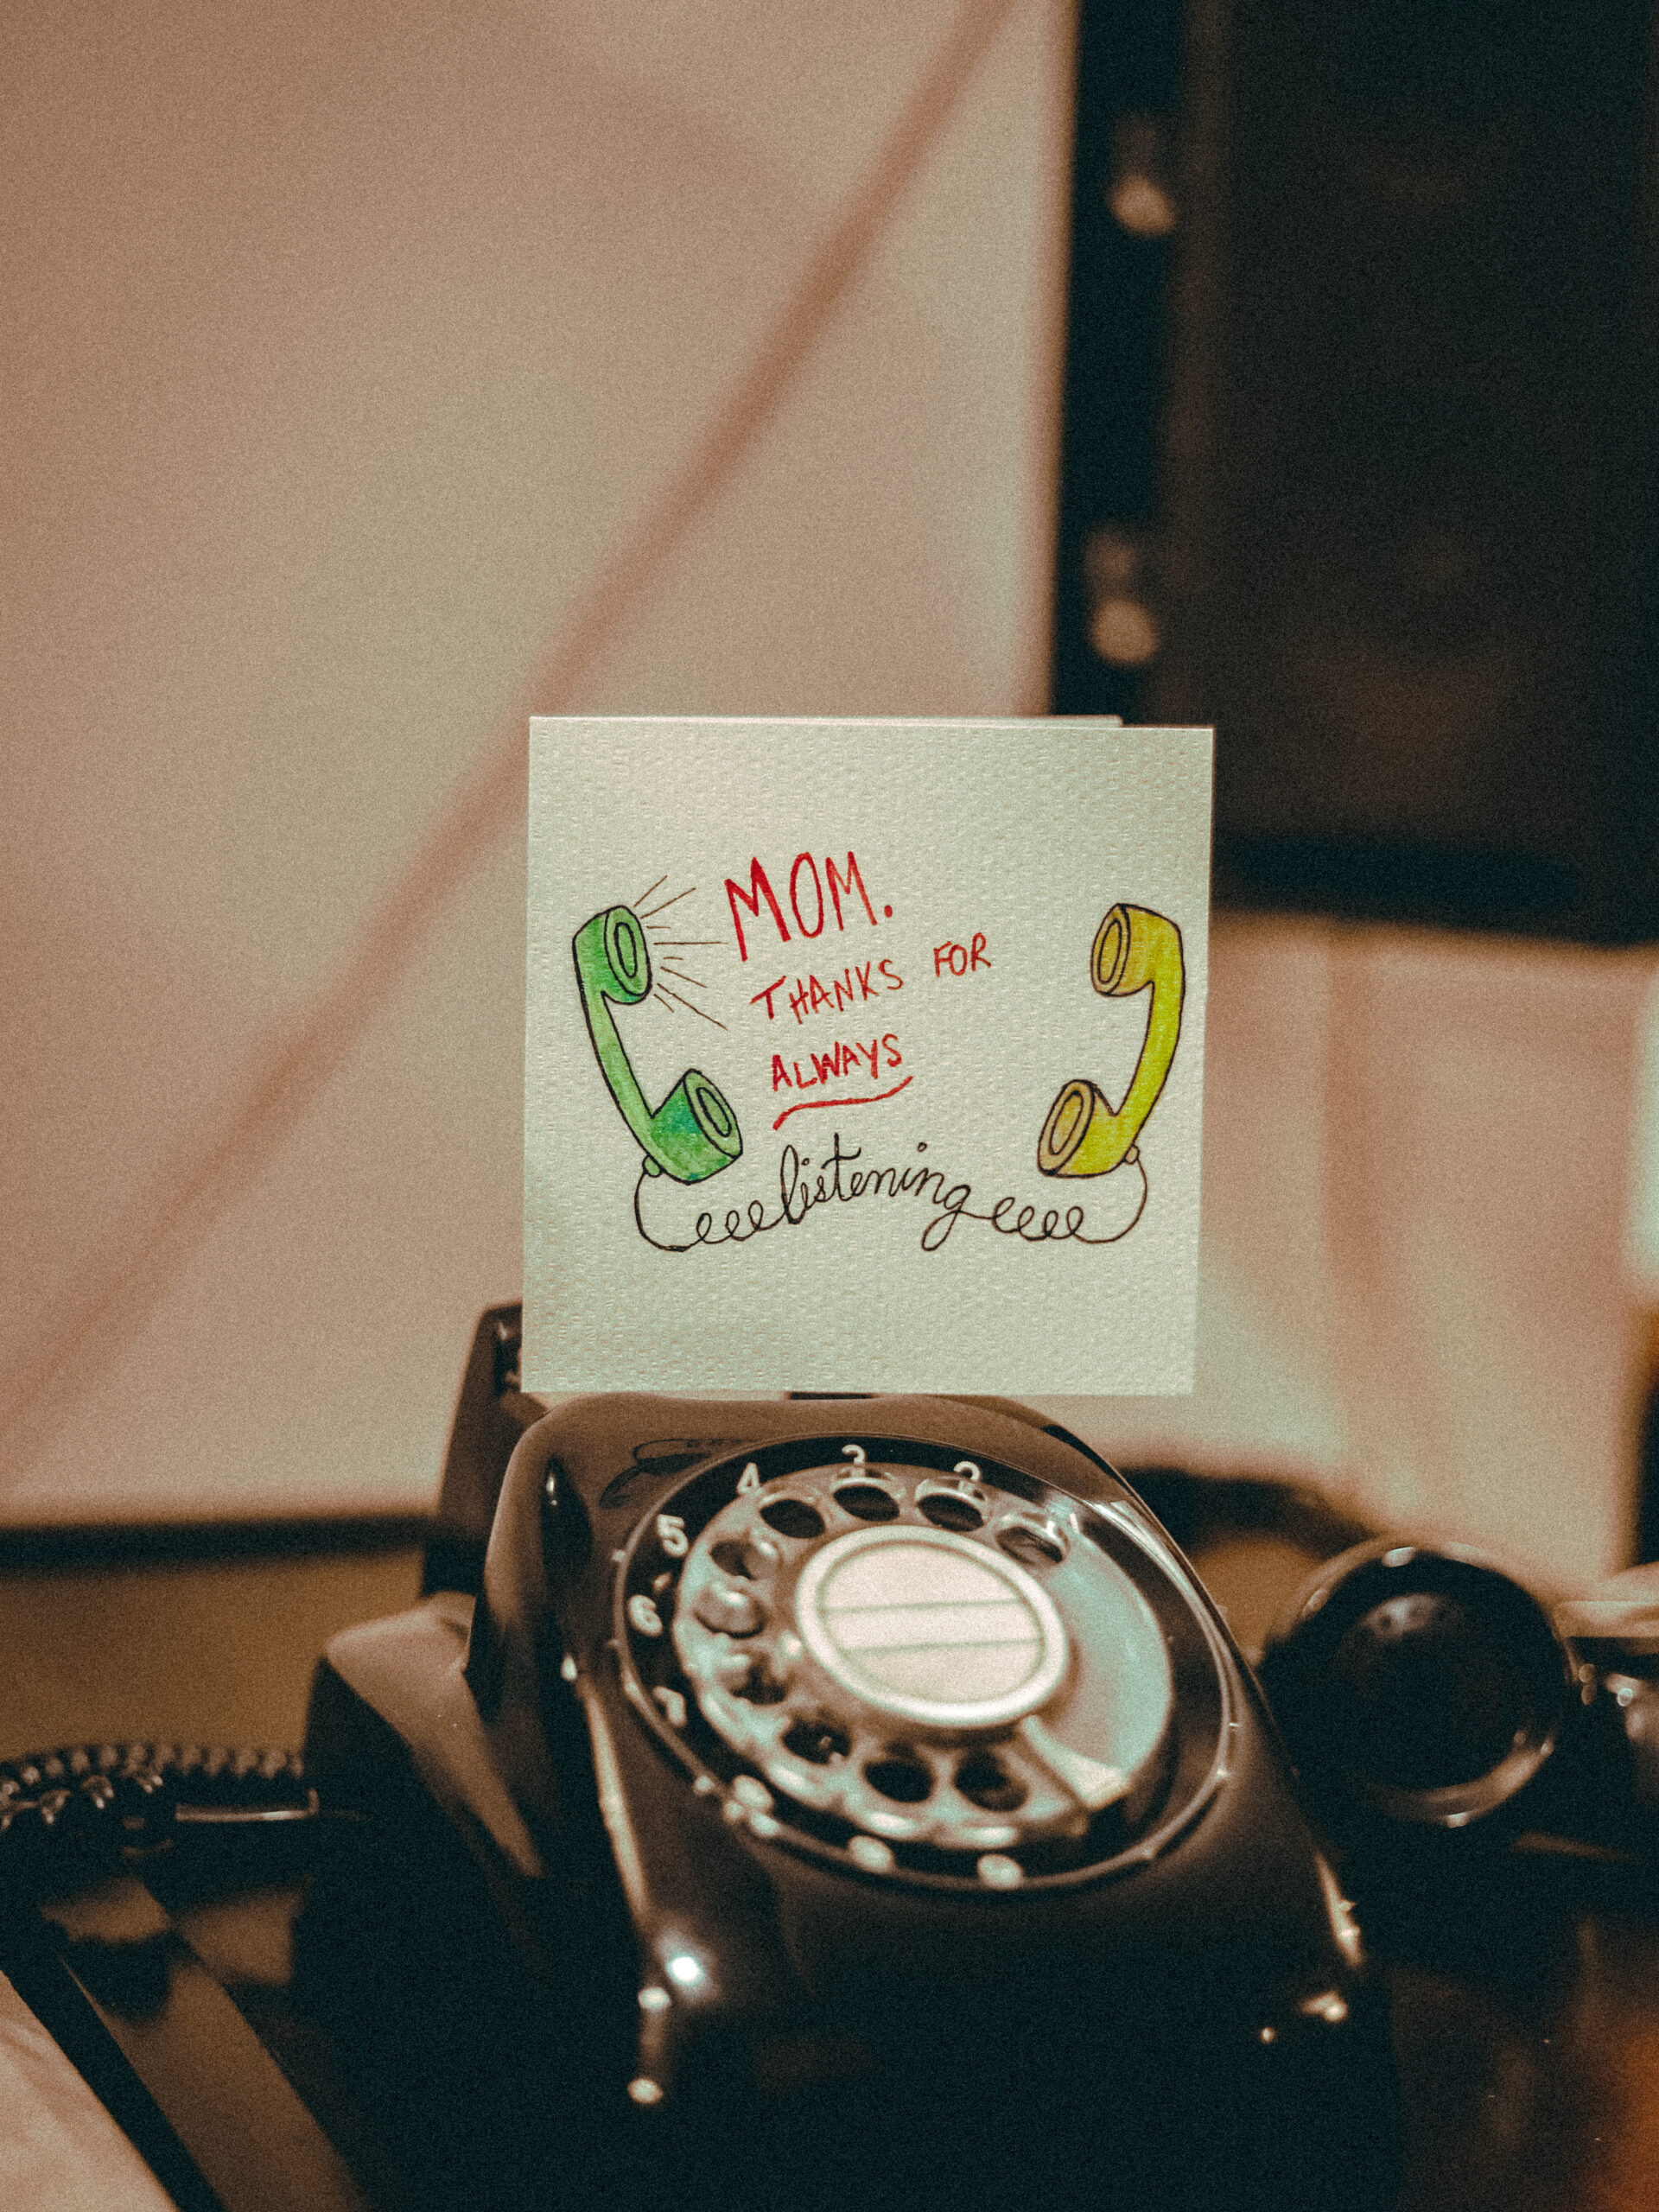 MOM.
THANKS FOR
ALWAYS
listening
4
3
2
5
6
7